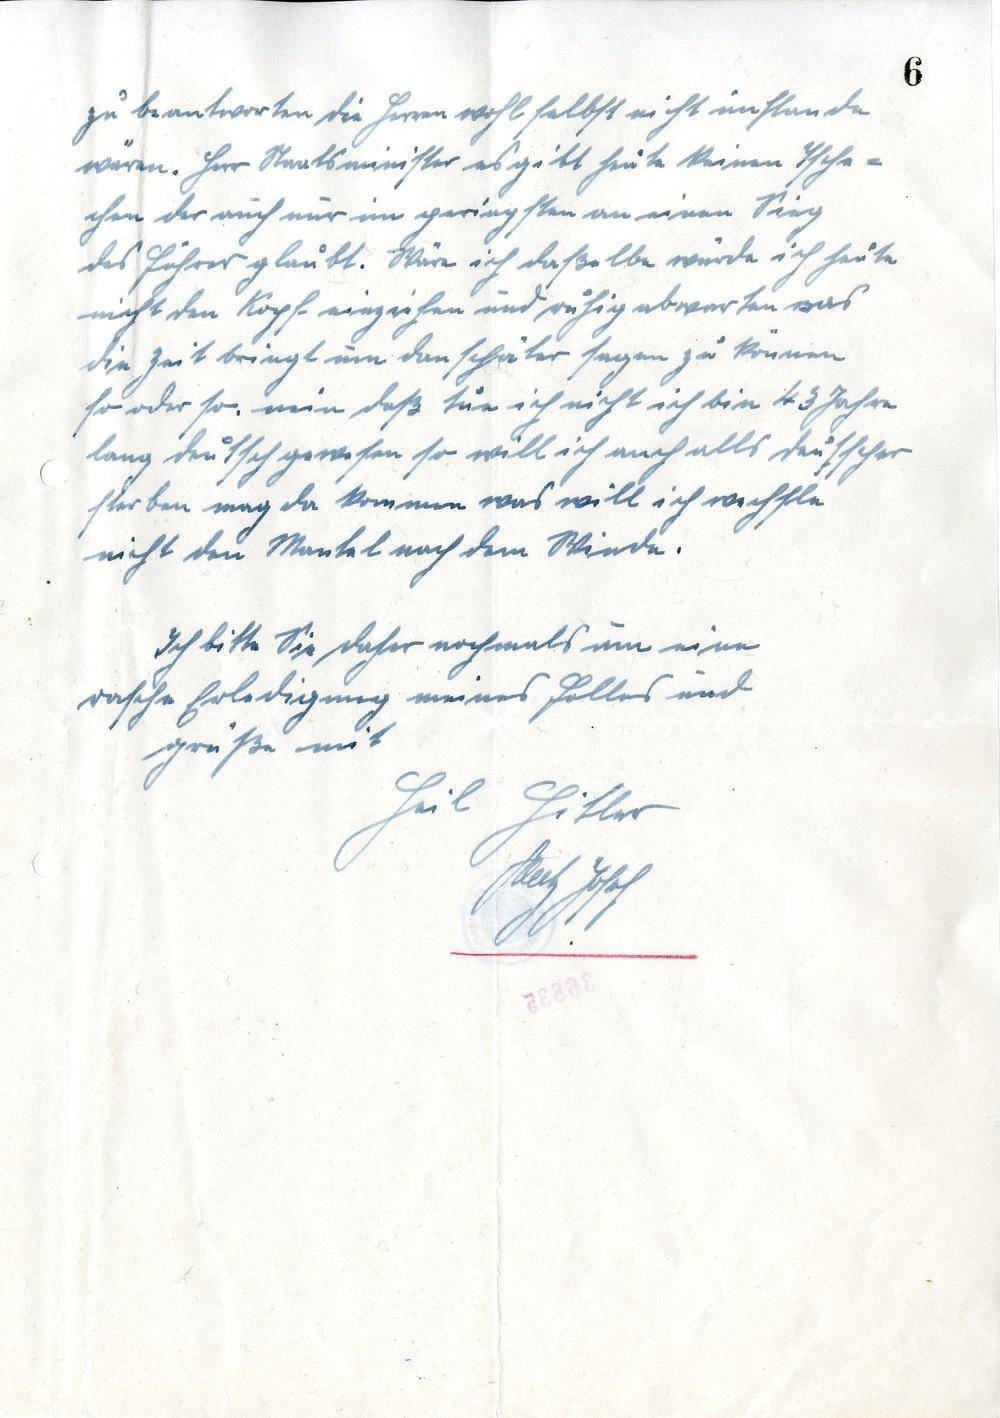 6
zu beantworten die Herren wohl selbst nicht imstande
wären. Herr Staatsminister es gibt heute keinen Tsche=
chen der auch nur im geringsten an einen Sieg
des Führer glaubt. Wäre ich daßelbe würde ich heute
nicht den Kopf einziehen und ruhig abwarten was
die Zeit bringt um dan später sagen zu können
so oder so. nein daß tue ich nicht ich bin 43 Jahre
lang deutsch gewesen so will ich auch alls deutscher
sterben mag da kommen was will ich wechsle
nicht den Mantel nach dem Winde.
Ich bitte Sie daher nochmals um eine
rasche Erledigung meines Falles und
grüße mit
Heil Hitler
Josef
36835